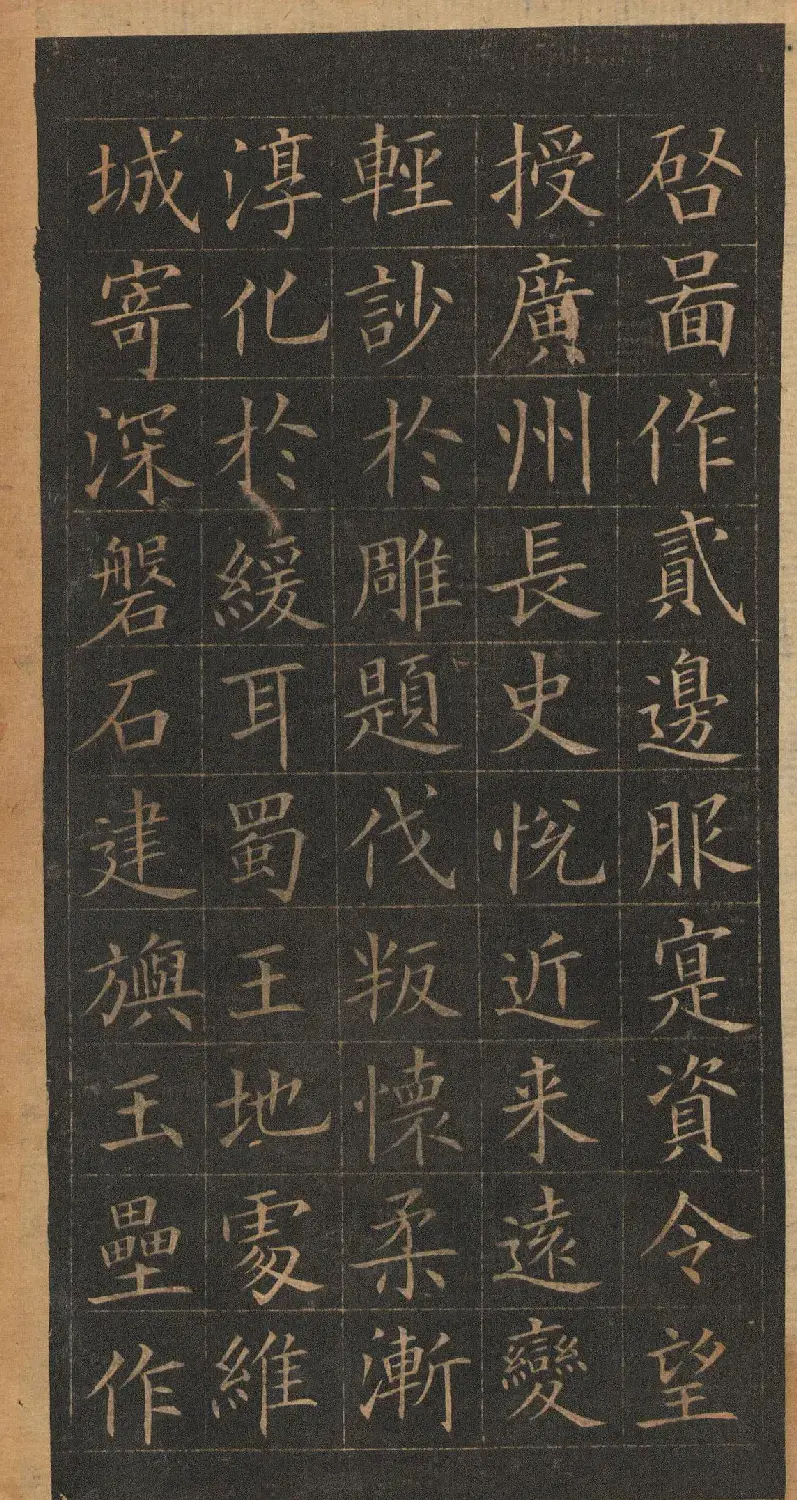 啓啚作貳邊服寔資令望
授廣州長史悦近来遠變
輕訬於雕題伐叛懷柔漸
淳化於緩耳蜀王地處維
城寄深磐石建旟玉壘作